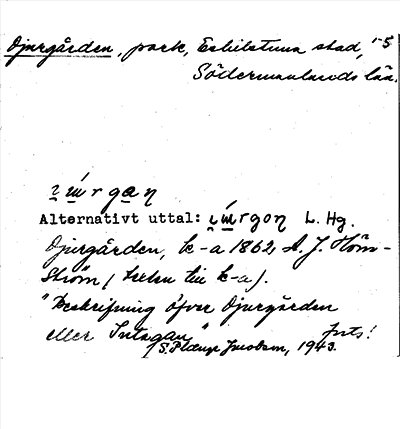 Djurgården, park, Eskilstuna stad, 1-5
Södermanlands län.
Alternativt uttal: L. Hg.
Djurgården, k-a 1862, A. J. Höm-
ström (texten till k-a).
"Beskrifning öfver Djurgården
eller Intagan" Ints!
S. Plæup Jacobsen, 1943.